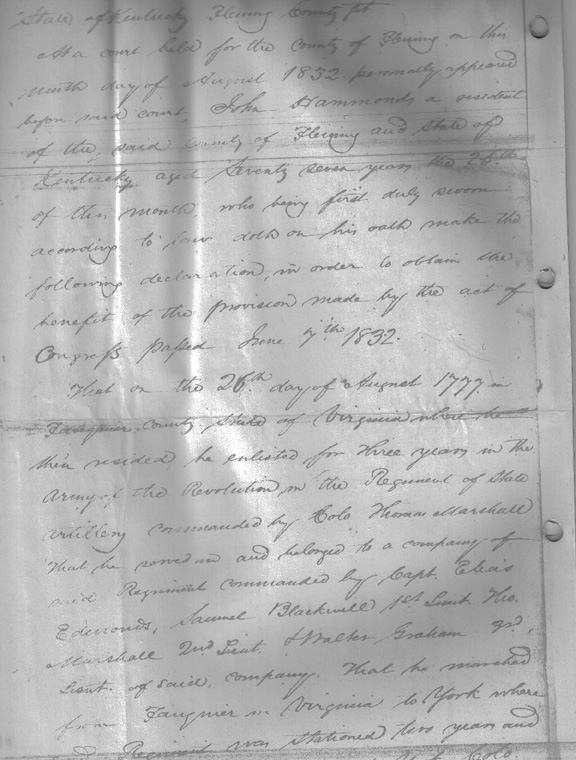 State of Kentucky Fleming County Sct.
At a court held for the County of Fleming on this
ninth day of August 1832 personally appeared
before said court, John Hammonds a resident
of the said County of Fleming and state of
Kentucky aged Seventy seven years the 26th
of this month who being first duly sworn
according to law doth on his oath make the
following declaration, in order to obtain the
benefit of the provision made by the act of
Congress passed June 7th 1832.
That on the 26th day of August 1777 in
Fauquier County State of Virginia where he
then resided he enlisted for three years in the
Army of the Revolution, in the Regiment of State
artillery commanded by Colo Thomas Marshall
that he served in and belonged to a company of
said Regiment commanded by Capt. Elias
Edmonds, Samuel Blackwell 1st Lieut. Tho.
Marshall 2nd Lieut. & Walter Graham 3rd
Lieut. of said company. That he marched
from Fauquier in Virginia to York where
said Regiment was stationed two years and
Colo.